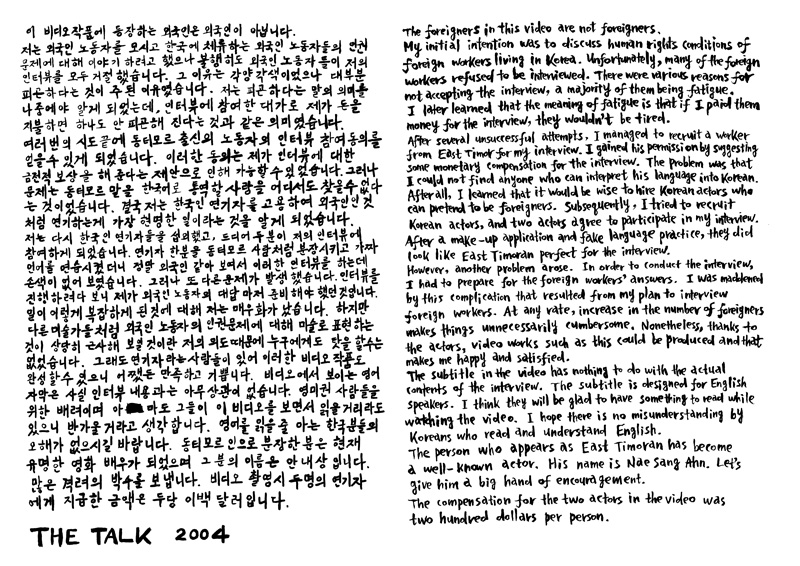 이 비디오작품에 등장하는 외국인은 외국인이 아닙니다.
저는 외국인 노동자를 모시고 한국에 체류하는 외국인 노동자들의 인권
문제에 대해 이야기 하려고 했으나 불행히도 외국인 노동자 들이 저의
인터뷰를 모두 거절 했습니다. 그 이유는 각양각색이었으나 대부분
피곤하다는 것이 주 된 이유였습니다. 저는 피곤하다는 말의 의미를
나중에야 알게 되었는데, 인터뷰에 참여한 대가로 제가 돈을
지불하면 하나도 안 피곤해 진다는 것과 같은 의미였습니다.
여러번의 시도끝에 동티모르 출신의 노동자의 인터뷰 참여동의를
얻을수 있게 되었습니다. 이러한 동의는 제가 인터뷰에 대한
금전적 보상을 해 준다는 제안으로 인해 가능할수 있었습니다. 그러나
문제는 동티모르 말을 한국어로 통역할 사람을 어디서도 찾을수 없다
는 것이었습니다. 결국 저는 한국인 연기자를 고용하여 외국인인 것
처럼 연기하는게 가장 현명한 일이라는 것을 알게 되었습니다.
저는 다시 한국인 연기자들을 섭외했고, 드디어 두분이 저의 인터뷰에
참여하게 되었습니다. 연기자 한분을 동티모르 사람처럼 분장시키고 가짜
언어를 연습시켰더니 정말 외국인 같아 보여서 이러한 인터뷰를 하는데
손색이 없어 보였습니다. 그러나 또 다른문제가 발생했습니다. 인터뷰를
진행하려다 보니 제가 외국인 노동자의 대답 마저 준비해야 했던것입니다.
일이 이렇게 복잡하게 된것에 대해 저는 매우 화가 났습니다. 하지만
다른 미술가들처럼 외국인 노동자의 인권문제에 대해 미술로 표현하는
것이 상당히 근사해 보일것이란 저의 의도때문에 누구에게도 탓을 할수는
없었습니다. 그래도 연기자 라는 사람들이 있어 이러한 비디오 작품도
완성할수 있으니 어쨌든 만족하고 기쁩니다. 비디오에서 보이는 영어
자막은 사실 인터뷰 내용과는 아무상관이 없습니다. 영미권 사람들을
위한 배려이며 아 마도 그들이 이 비디오를 보면서 읽을거리라도
있으니 반가울거라고 생각합니다. 영어를 읽을 줄 아는 한국분들의
오해가 없으시길 바랍니다. 동티모르인으로 분장한분은 현재
유명한 영화 배우가 되었으며 그 분의 이름은 안내상 입니다.
많은 격려의 박수를 보냅니다. 비디오 촬영시 두명의 연기자
에게 지급한 금액은 두당 이백 달러입니다.
THE TALK 2004
The foreigners in this video are not foreigners.
My initial intention was to discuss human rights conditions of
foreign workers living in Korea. Unfortunately, many of the foreign
workers refused to be interviewed. There were various reasons for
not accepting the interview, a majority of them being fatigue.
I later learned that the meaning of fatigue is that if I paid them
money for the interview, they wouldn't be tired.
After several unsuccessful attempts, I managed to recruit a worker
from East Timor for my interview. I gained his permission by suggesting
some monetary compensation for the interview. The problem was that
I could not find anyone who can interpret his language into Korean.
After all, I learned that it would be wise to hire Korean actors who
can pretend to be foreigners. Subsequently, I tried to recruit
Korean actors, and two actors agree to participate in my interview.
After a make-up application and fake language practice, they did
look like East Timoran perfect for the interview.
However, another problem arose. In order to conduct the interview,
I had to prepare for the foreign workers' answers. I was maddened
by this complication that resulted from my plan to interview
foreign workers. At any rate, increase in the number of foreigners
makes things unnecessarily cumbersome. Nonetheless, thanks to
the actors, video works such as this could be produced and that
makes me happy and satisfied.
The subtitle in the video has nothing to do with the actual
contents of the interview. The subtitle is designed for English
speakers. I think they will be glad to have something to read while
watching the video. I hope there is no misunderstanding by
Koreans who read and understand English.
The person who appears as East Timoran has become
a well-known actor. His name is Nae Sang Ahn. Let's
give him a big hand of encouragement.
The compensation for the two actors in the video was
two hundred dollars per person.